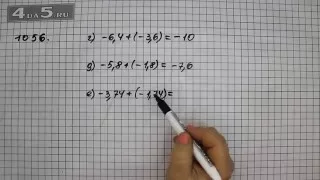 4UA5.RU
1056.
г) -6,4+(-3,6)=-10
д) -5,8+(-1,8)=-7,6
е) -3,74+(-1,74)=